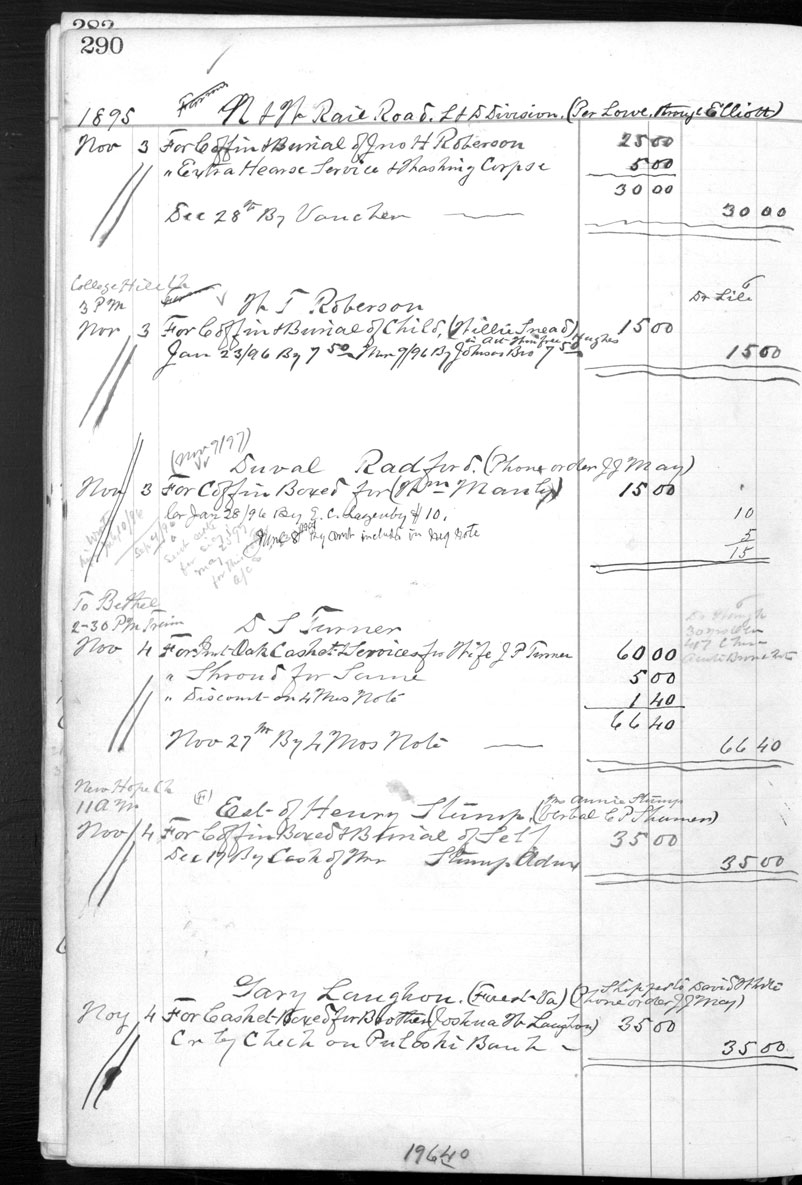 282
290
1895 N & W Rail Road. L & D Division. (Per Lowe. through Elliott)
Nov 3 For Coffin & Burial of Jno H Roberson 25 00
" Extra Hearse Service & Washing Corpse 5 00
30 00
Dec 28th By Voucher 30 00
College Hill Ch
3 PM W T Roberson Dr Lile
Nov 3 For Coffin & Burial of Child, (Willie Snead) 15 00
Jan 23/96 By 7 50 Mar 9/96 By Johnson Bro 7 50
15 00
(Nov 9/97)
Duval Radford. (Phone order J J May)
Nov 3 For Coffin Boxed for (Wm Manly) 15 00
Cr Jan 28/96 By E. C. Lazenby # 10. 10
June 8th By amt included in Neg Note 5
15
To Bethel
2-30 PM Train D S Turner
Nov 4 For Oak Casket & Services for Wife J P Turner 60 00
" Shroud for Same 5 00
" Discount on 4 Mos Note 1 40
66 40
Nov 27th By 4 Mos Note 66 40
New Hope Ch
11 A M Est of Henry Stump, (Mrs Annie Stump
Verbal C P Shumen)
Nov 4 For Coffin Boxed & Burial of Self 35 00
Dec 19 By Cash of Mr Stump Admx 35 00
Gary Laughon. (Forest Va) (Shipped to David White
Phone order J J May)
Nov 4 For Casket Boxed for Brother (Joshua W Laughon) 35 00
Cr by Check on Pulaski Bank 35 00
196 40